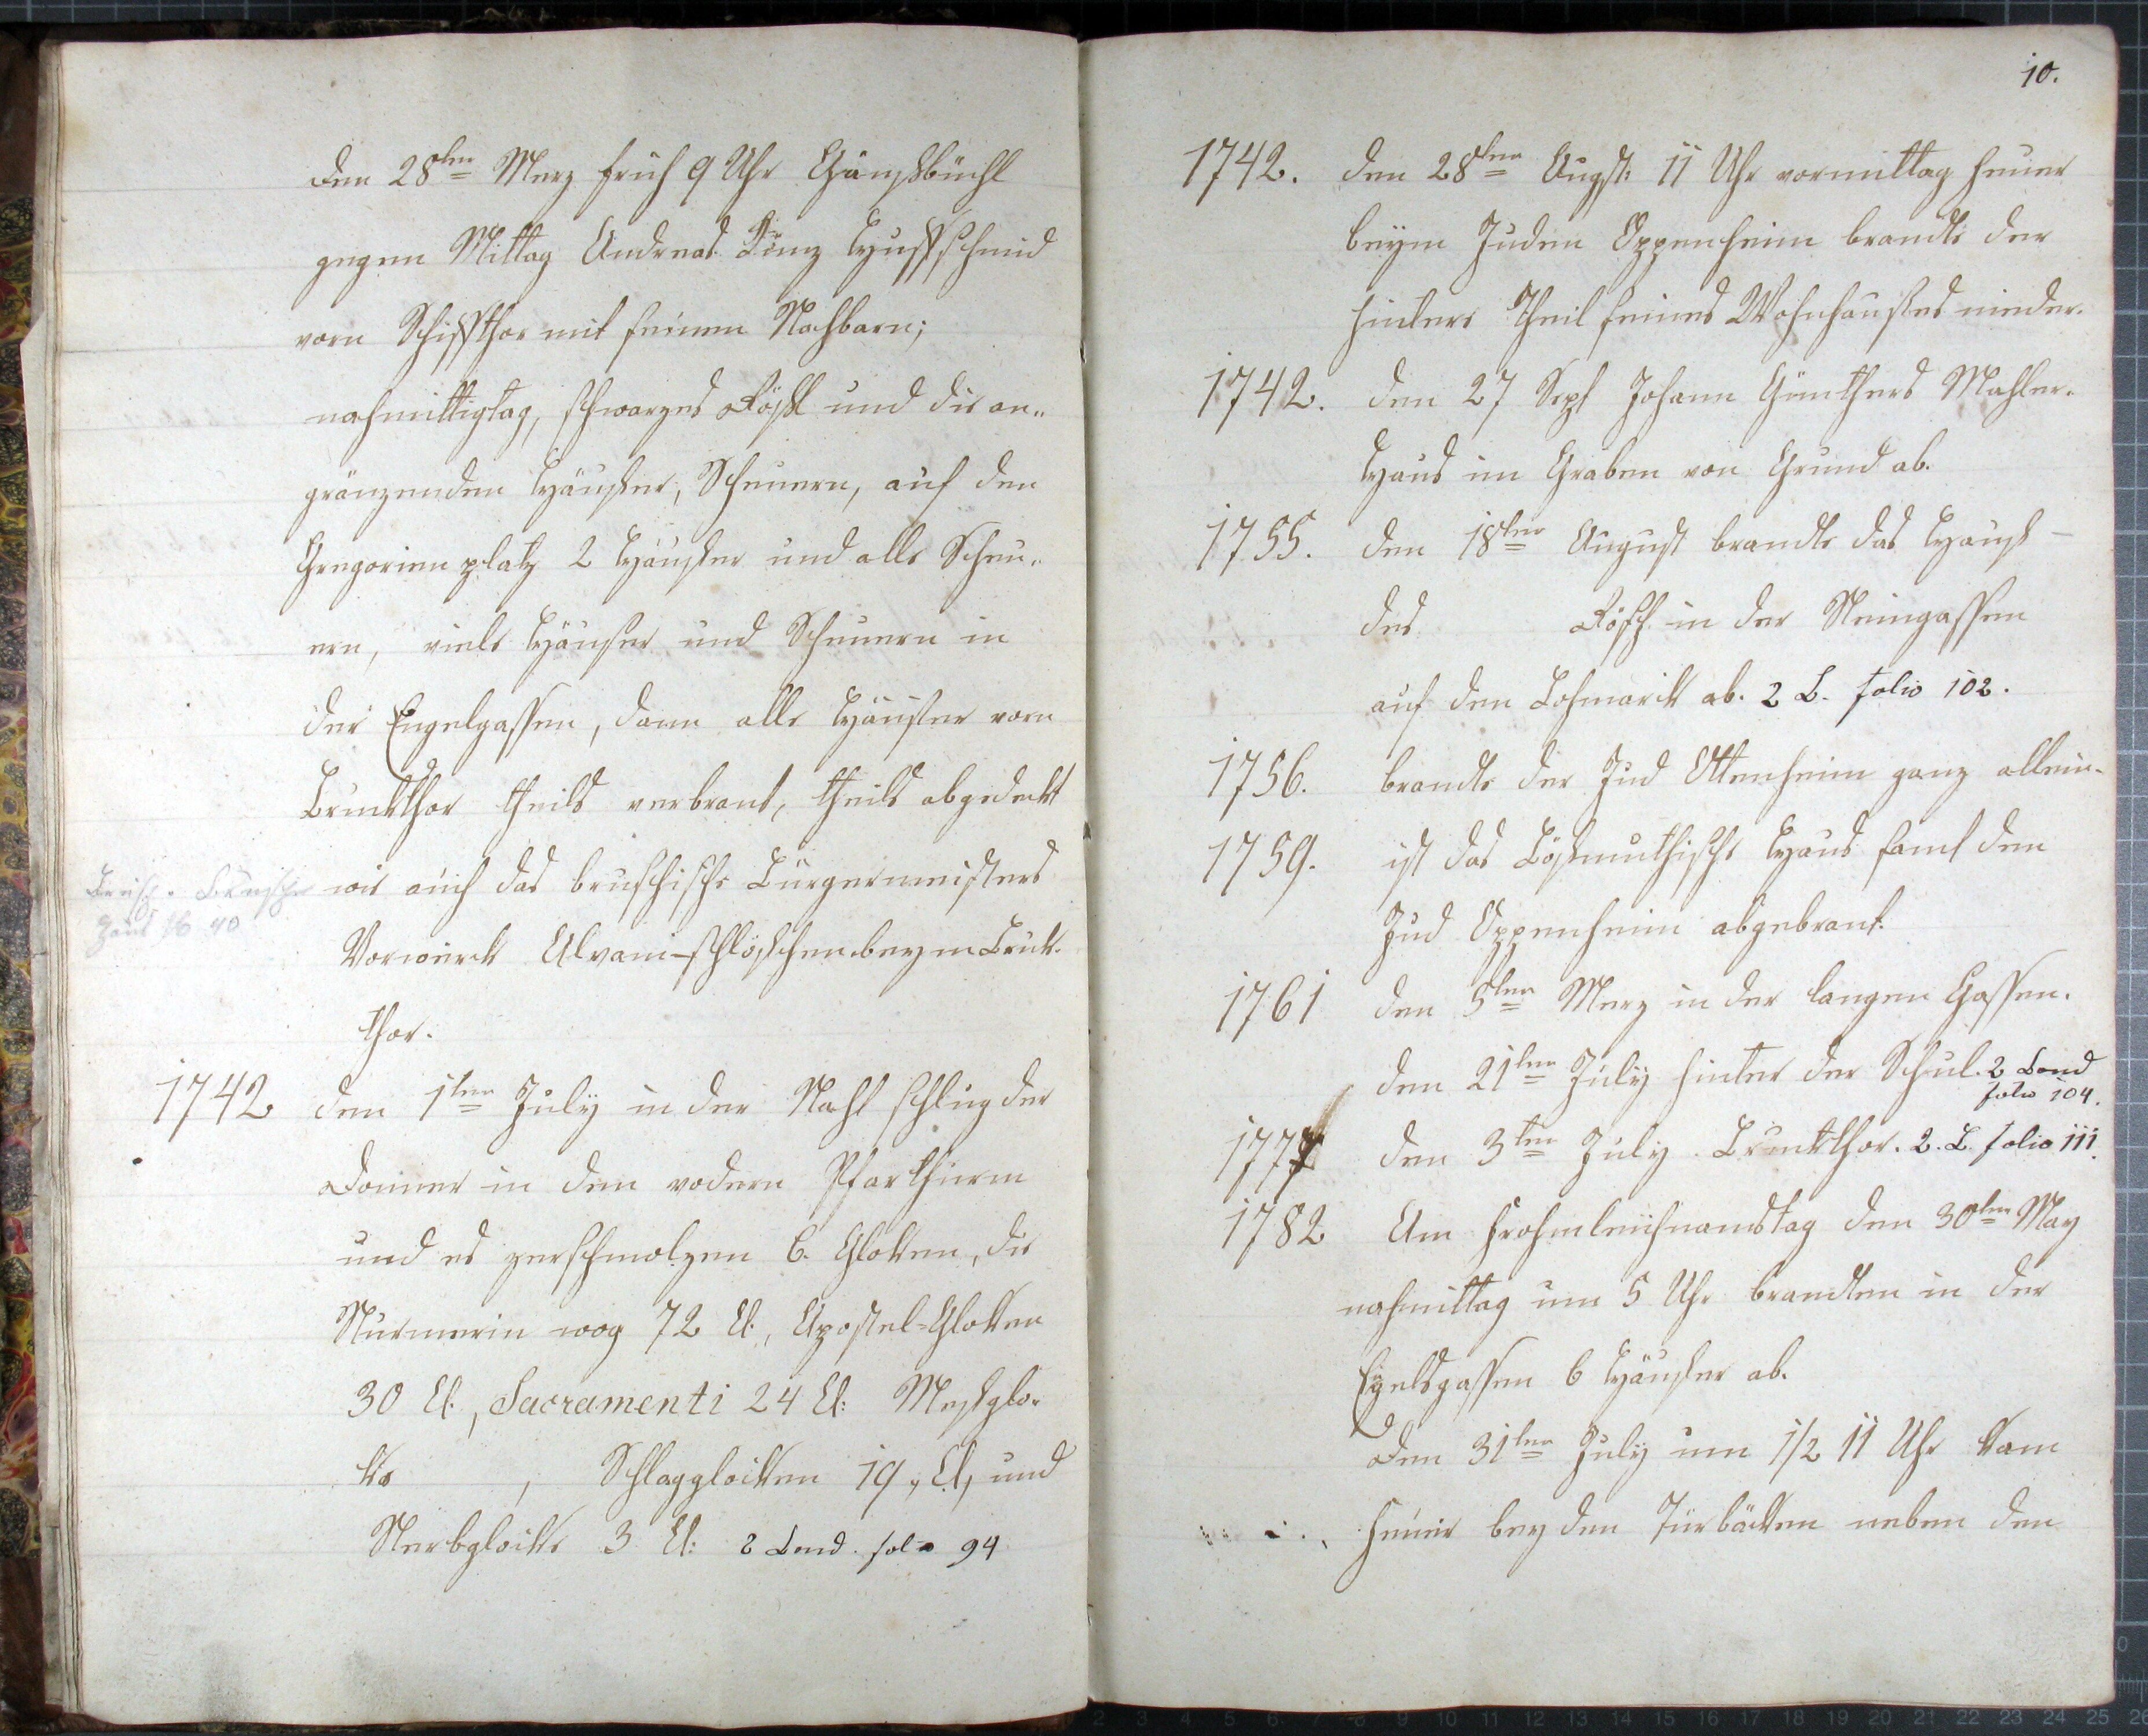 den 28ten Merz früh 9 Uhr Gänsbüchl
gegen Mittag Andreas Hufschmid
vorn Schifthor mit seinem Nachbarn;
nachmittigtag, schwarzes Rößl und die an„
gränzenden Häußer, Scheuern, auf den
Gregorien platz 2 Häußer und alle Scheu„
ern, viele Häußer und Scheuern in
der Engelgassen, dann alle Häußer vorn
Bruckthor theils verbrant, theils abgedeckt
wie auch das bruschische Bürgermeisters
Haus
Vorwerck Alvani-schlößchen beym Bruck-
thor.
1742 den 1ten July in der Nacht schlug der
Donner in den vodern Pfarthurm
und es zerschmolzen 6. Glocken, die
Sturmerin wog 72 Ct., Apostel-Glocken
30 Ct., Sacramenti 24 Ct: Meßglo-
cke , Schlagglocken 19„ Ct, und
Sterbglocke 3 Ct: 2 Band. folio 94
10.
1742. den 28ten Augst: 11 Uhr vormittag Feuer
beym Juden Oppenheim brandte der
hintere Theil seines Wohnhaußes nieder.
1742. den 27 Sept Johann Günthers Mahler-
Haus im Graben von Grund ab.
1755. den 18ten August brandte das Hauß
des Rösch in der Steingassen
auf den Rohmarck ab. 2 B. folio 102.
1756. brandte der Jud Ottenheim ganz allein.
1759. ist das Haus samt dem
Jud Oppenheim abgebrant.
1761 den 5ten Merz in der langen Gassen.
den 21ten July hinter der Schul. 2 Band
folio 104.
1777 den 3ten July Bruckthor. 2. B. folio 111.
1782 Am Frohnleichnamstag den 30ten May
nachmittag um 5 Uhr brandten in der
Egelsgassen 6 Häußer ab.
Den 31ten July um 1/2 11 Uhr kam
Feuer bey den Türbäcken neben den